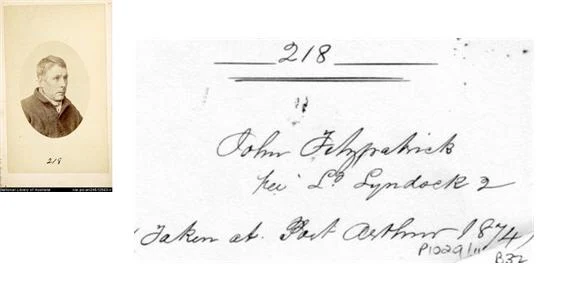 218
National Library of Australia
218
John Fitzpatrick
per Ld Lyndock 2
(Taken at Port Arthur 1874)
P1029/11
B32